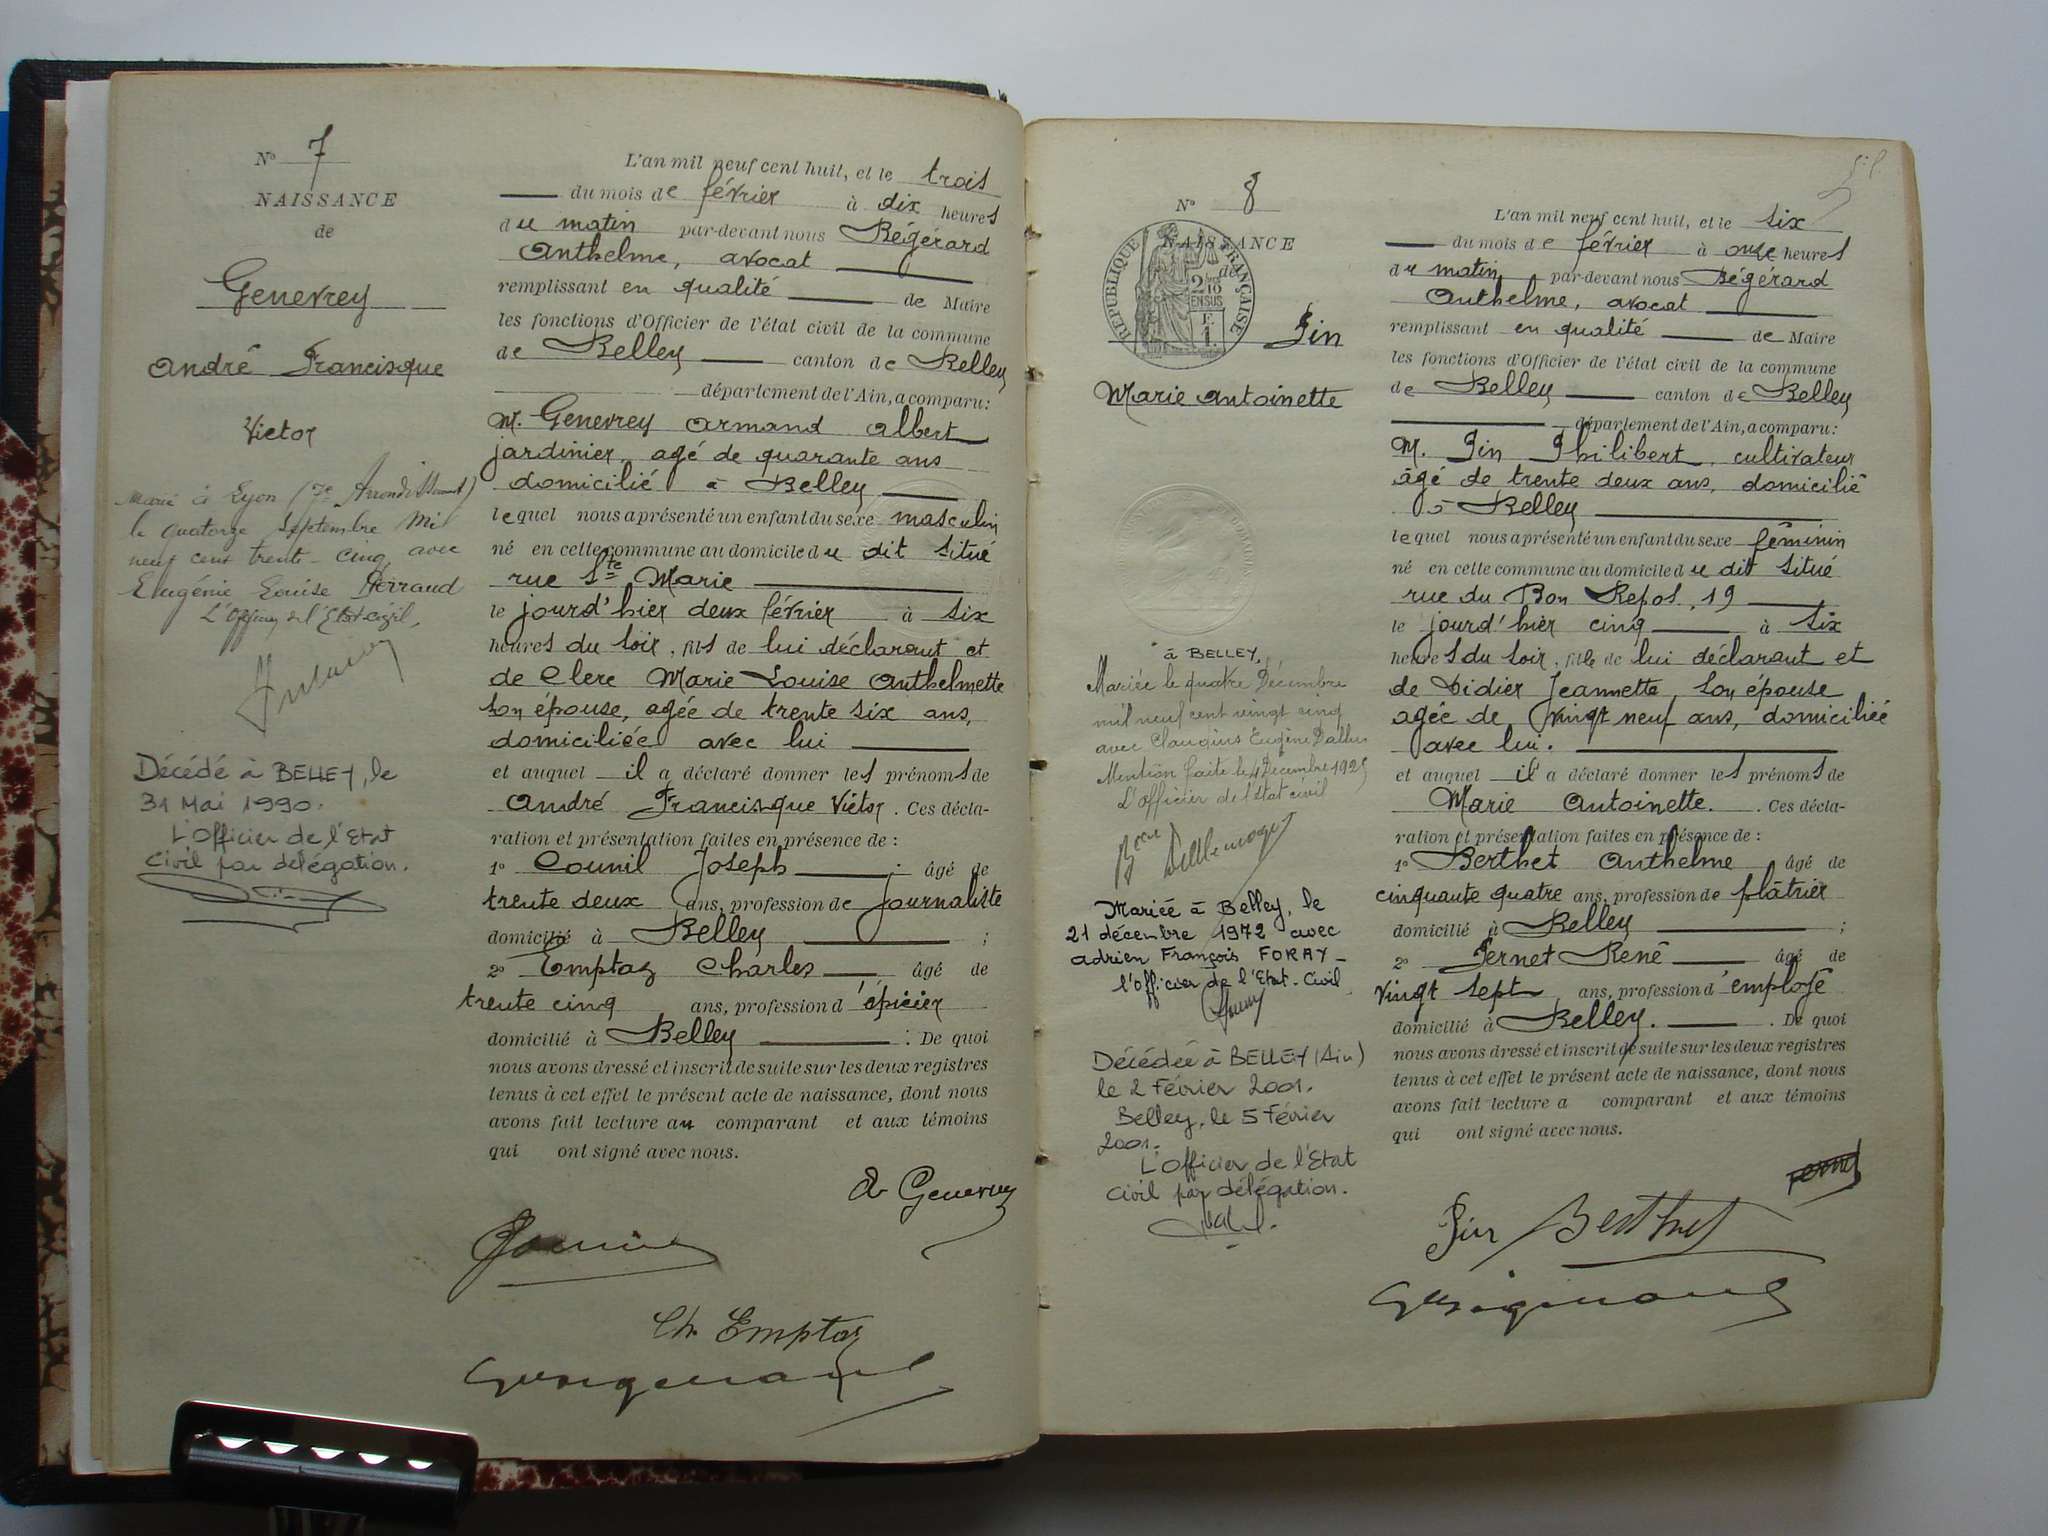 N° 7
NAISSANCE
de
Genevrey
André Francisque
Victor
Marié à Lyon (7e Arrondissement)
le quatorze Septembre Mil
neuf cent trente-cinq avec
Eugénie Louise Perraud
L'Officier de l'Etat civil,
Décédé à BELLEY, le
31 Mai 1990.
L'Officier de l'Etat
Civil par délégation.
L'an mil neuf cent huit, et le trois
du mois de février à dix heures
du matin par-devant nous Bégérard
Anthelme, avocat
remplissant en qualité de Maire
les fonctions d'Officier de l'état civil de la commune
de Belley canton de Belley
département de l'Ain, a comparu:
M. Genevrey Armand Albert
jardinier, agé de quarante ans
domicilié à Belley
lequel nous a présenté un enfant du sexe masculin
né en cette commune au domicile du dit situé
rue Ste Marie
le jourd'hier deux février à six
heures du soir, fils de lui déclarant et
de Clerc Marie Louise Anthelmette
son épouse, agée de trente six ans,
domiciliée avec lui
et auquel il a déclaré donner les prénoms de
André Francisque Victor. Ces décla-
ration et présentation faites en présence de :
1° Counil Joseph âgé de
trente deux ans, profession de journaliste
domicilié à Belley ;
2° Emptaz Charles âgé de
trente cinq ans, profession d'épicier
domicilié à Belley : De quoi
nous avons dressé et inscrit de suite sur les deux registres
tenus à cet effet le présent acte de naissance, dont nous
avons fait lecture au comparant et aux témoins
qui ont signé avec nous.
Genevrey
Ch. Emptaz
N° 8
NAISSANCE
de
RÉPUBLIQUE FRANÇAISE
2/10
EN SUS
F.
1
Pin
Marie Antoinette
à BELLEY,
Mariée le quatre Décembre
mil neuf cent vingt cinq
avec Claudius Eugène
Mention faite le 4 Décembre 1925
L'officier de l'état civil
Mariée à Belley, le
21 décembre 1972 avec
Adrien François FORAY _
l'officier de l'Etat-Civil
Décédée à BELLEY (Ain)
le 2 Février 2001.
Belley, le 5 Février
2001.
L'Officier de l'Etat
Civil par délégation.
L'an mil neuf cent huit, et le six
du mois de février à onze heures
du matin par-devant nous Bégérard
Anthelme, avocat
remplissant en qualité de Maire
les fonctions d'Officier de l'état civil de la commune
de Belley canton de Belley
département de l'Ain, a comparu:
M. Pin Philibert, cultivateur
âgé de trente deux ans, domicilié
à Belley
lequel nous a présenté un enfant du sexe féminin
né en cette commune au domicile du dit situé
rue du Bon Repos, 19
le jourd'hier cinq à six
heures du soir, fille de lui déclarant et
de Didier Jeannette, son épouse
agée de vingt neuf ans, domiciliée
avec lui.
et auquel il a déclaré donner les prénoms de
Marie Antoinette. Ces décla-
ration et présentation faites en présence de :
1° Berthet Anthelme âgé de
cinquante quatre ans, profession de plâtrier
domicilié à Belley ;
2° Pernet René âgé de
vingt sept ans, profession d'employé
domicilié à Belley. De quoi
nous avons dressé et inscrit de suite sur les deux registres
tenus à cet effet le présent acte de naissance, dont nous
avons fait lecture a comparant et aux témoins
qui ont signé avec nous.
Pernet
Pin Berthet